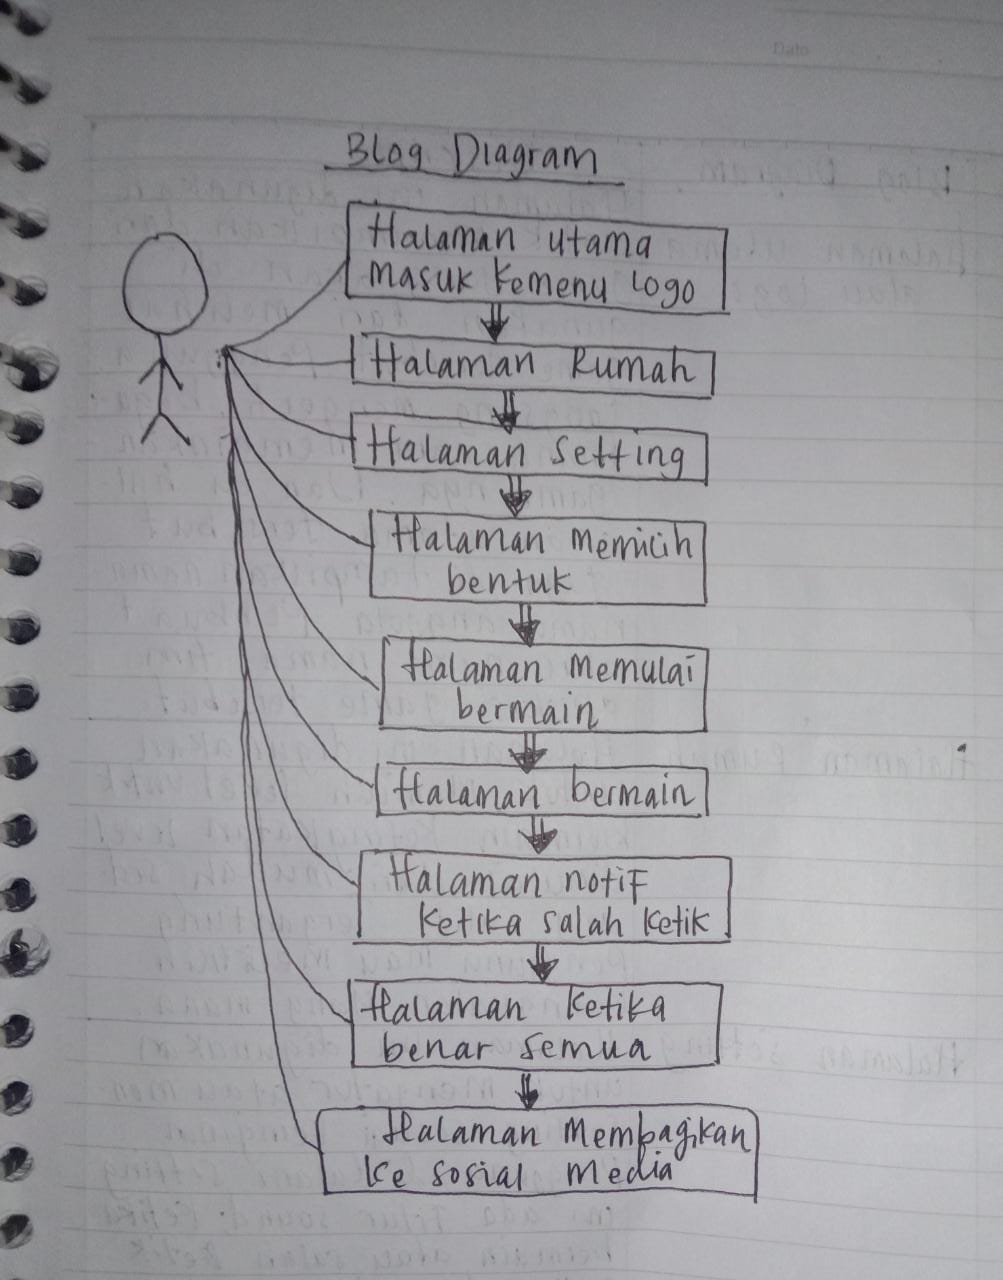 Date
Blog Diagram
Halaman utama
masuk kemenu logo
Halaman Rumah
Halaman setting
Halaman memilih
bentuk
Halaman Memulai
bermain
Halaman bermain
Halaman notif
ketika salah ketik
Halaman ketika
benar semua
Halaman Membagikan
ke sosial media